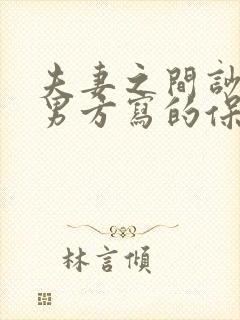 夫妻之間訬
男方寫的保
林言傾